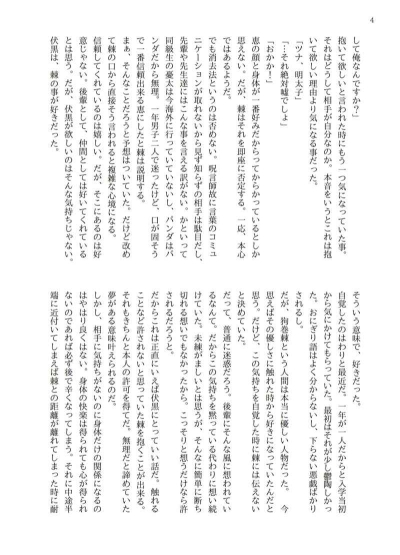 4
して俺なんですか？」
抱いて欲しいと言われた時にもう一つ気になっていた事。
それはどうして相手が自分なのか。本音をいうとこれは抱
いて欲しい理由より気になる事だった。
「ツナ、明太子」
「…それ絶対嘘でしょ」
「おかか！」
恵の顔と身体が一番好みだからってからかっているとしか
思えない。だが、棘はそれを即座に否定する。一応、本心
ではあるようだ。
でも消去法というのは否めない。呪言師故に言葉のコミュ
ニケーションが取れないから見ず知らずの相手は駄目だし、
先輩や先生達にはこんな事を言える訳がない。かといって
同級生の憂太は今海外に行っていていないし、パンダはパ
ンダだから無理。一年男子二人で迷ったけど、口が固そう
で一番信頼出来る恵にしたと棘は説明する。
まぁ、そんなことだろうと予想はついていた。だけど改め
て棘の口から直接そう言われると複雑な心境になる。
信頼してくれているのは嬉しい。だが、そこにあるのは好
意じゃない。後輩として、仲間としては好いてくれている
とは思う。だが、伏黒が欲しいのはそんな気持ちじゃない。
伏黒は、棘の事が好きだった。
そういう意味で、好きだった。
自覚したのはわりと最近だ。二年が一人だからと入学当初
から気にかけてもらっていた。最初はそれが少し鬱陶しかっ
た。おにぎり語はよく分からないし、下らない悪戯ばかり
されるし。
だが、狗巻棘という人間は本当に優しい人物だった。　今
思えばその優しさに触れた時から好きになっていたんだと
思う。だけど、この気持ちを自覚した時に棘には伝えない
と決めていた。
だって、普通に迷惑だろう。後輩にそんな風に想われてい
るなんて。だからこの気持ちを黙っている代わりに想い続
けていた。未練がましいとは思うが、そんなに簡単に断ち
切れる想いでもなかったから。こっそりと想うだけなら許
されるだろうと。
だからこれは正直にいえば伏黒にとっていい話だ。触れる
ことなど許されないと思っていた棘を抱くことが出来る。
それもきちんと本人の許可を得てだ。無理だと諦めていた
夢がある意味叶えられるのだ。
しかし、相手に気持ちがないのに身体だけの関係になるの
はやはり良くはない。身体の快楽は得られても心が得られ
ないのであれば必ず後で辛くなってしまう。それに中途半
端に近付いてしまえば棘との距離が離れてしまった時に耐